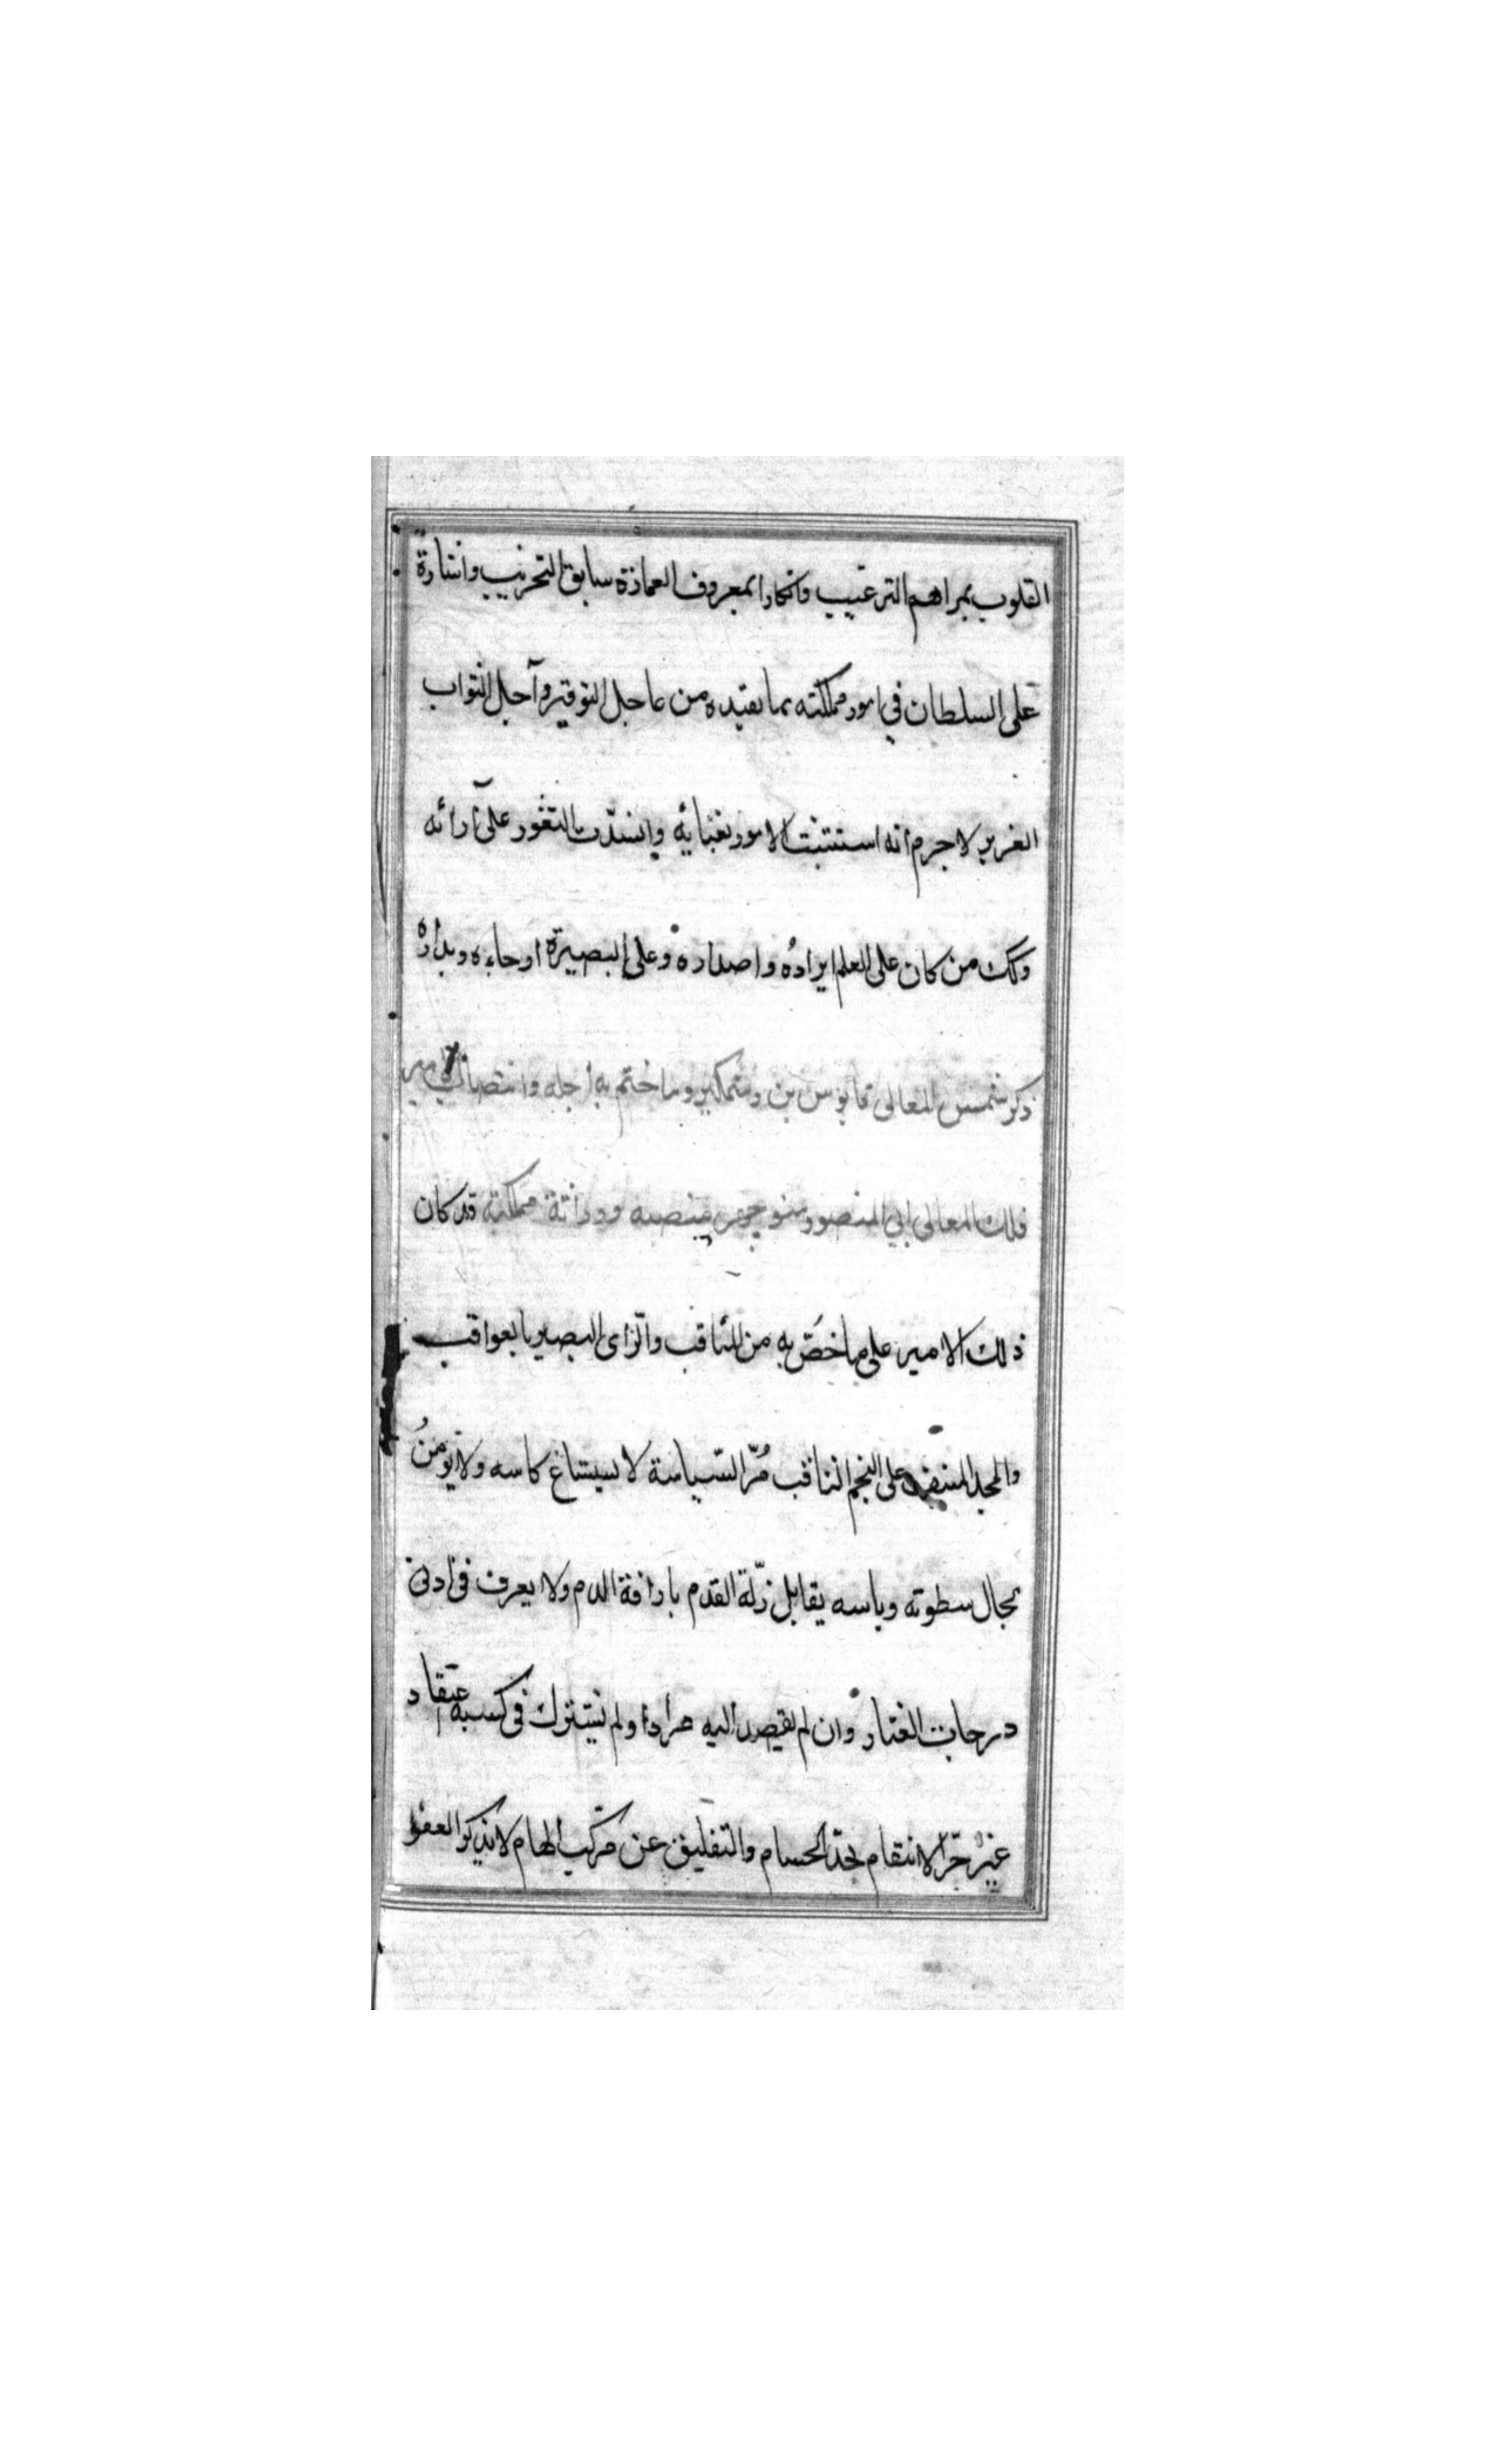 القلوب بمراهم الترغيب وانكارا بمعروف العمارة سابق التخريب واشارة
على السلطان في امور مملكته بما يقيده من عاجل التوقير وآجل الثواب
الغرير لا جرم أنه استتبت الامور بغنائه وانسدّت الثغور على آرائه
وكك من كان على العلم ايراده واصداره وعلى البصيرة اوحاءه وبداره
ذكر شمس المعالى قابوس بن وشمكير وما ختم به أجله وانتصاب الامير
فلك المعالى ابي المنصور منوجهر منصبه ووراثة مملكته قد كان
ذلك الامير على ما خصّ به من المناقب والرّاى البصير بالعواقب
والمجد المنيف على النجم الثاقب مُرّ السّياسة لا يستساغ كاسه ولا يؤمنُ
بحال سطوته وباسه يقابل زلّة القدم باراقة الدم ولا يعرف فى ادنى
درجات العثار وان لم يقصد اليه مرادا ولم يشترك فى كسبه اعتقاد
غير حرّ الانتقام بحدّ الحسام والتفليق عن مركب الهام لا يذكر العفو